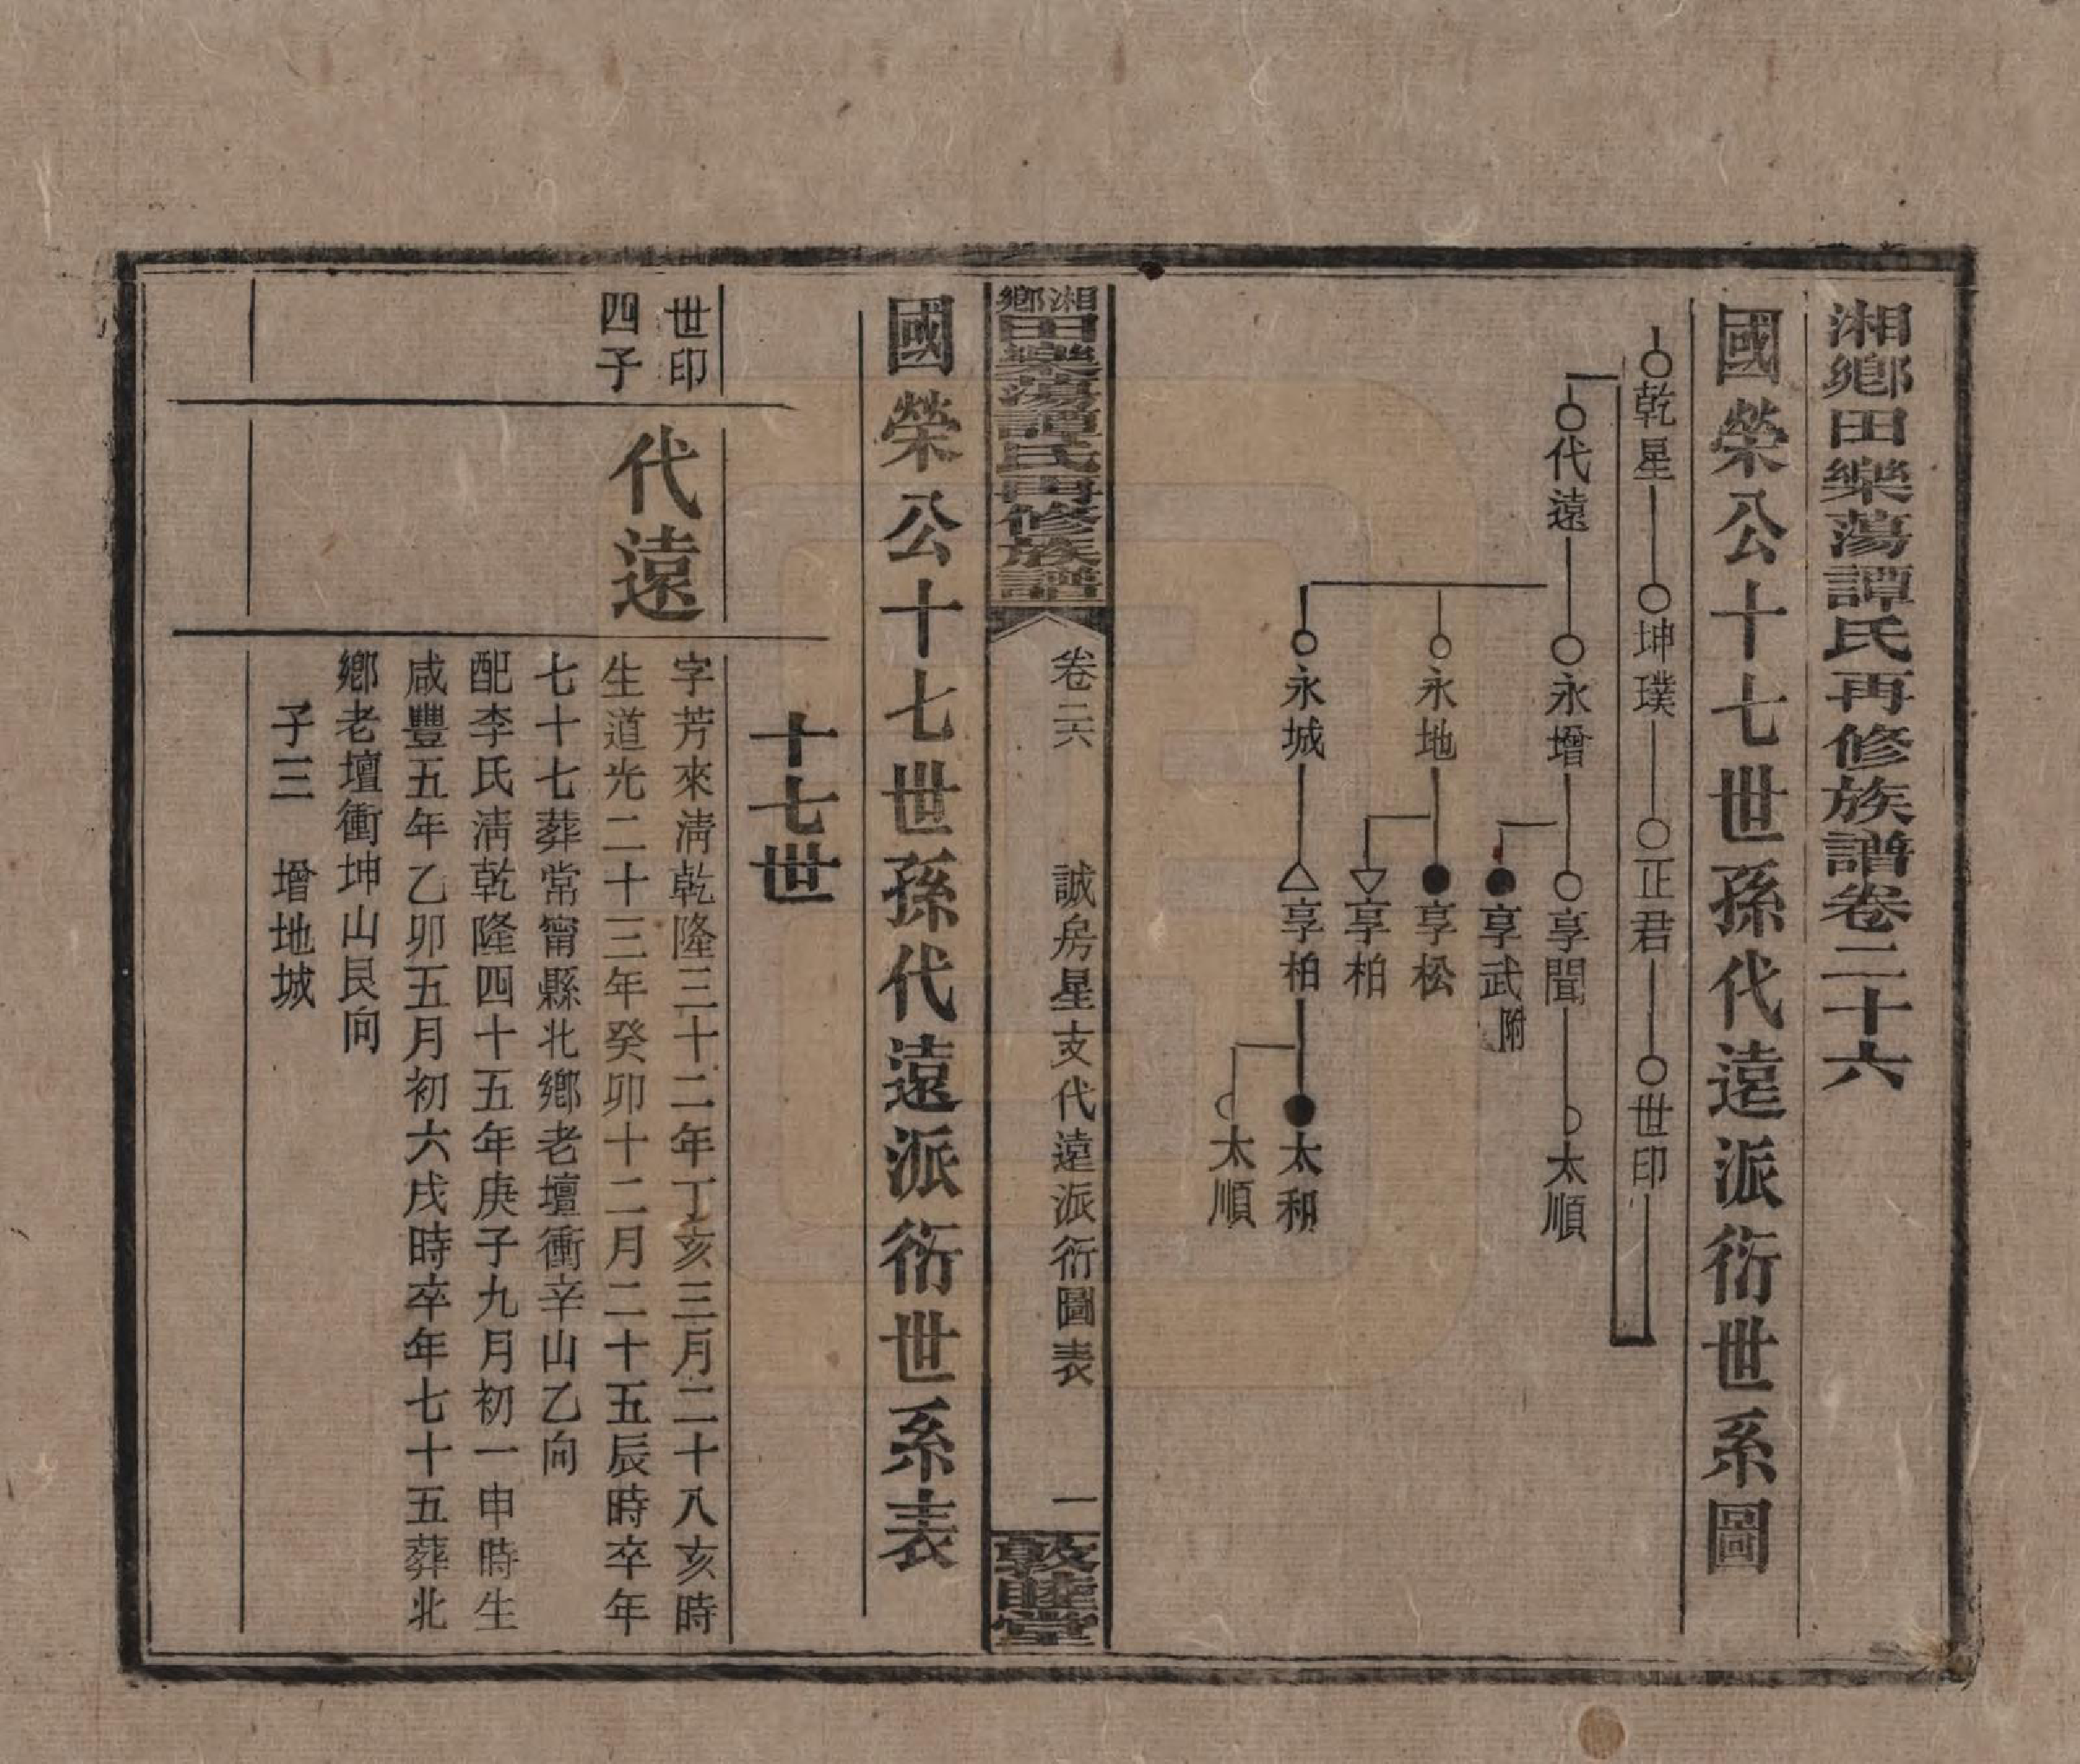 湘鄉田樂蕩譚氏再修族譜卷二十六
國榮公十七世孫代遠派衍世系圖
乾星 坤璞 正君 世印
代遠 永增 享聞 太順
享武附
永地 享松
享柏
永城 享柏 太和
太順
湘鄉田樂蕩譚氏再修族譜
卷二六 誠房星支代遠派衍圖表 一
敦睦堂
國榮公十七世孫代遠派衍世系表
十七世
世印
四子
代遠
字芳來淸乾隆三十二年丁亥三月二十八亥時
生道光二十三年癸卯十二月二十五辰時卒年
七十七葬常甯縣北鄉老壇衝辛山乙向
配李氏淸乾隆四十五年庚子九月初一申時生
咸豐五年乙卯五月初六戌時卒年七十五葬北
鄉老壇衝坤山艮向
子三 增地城